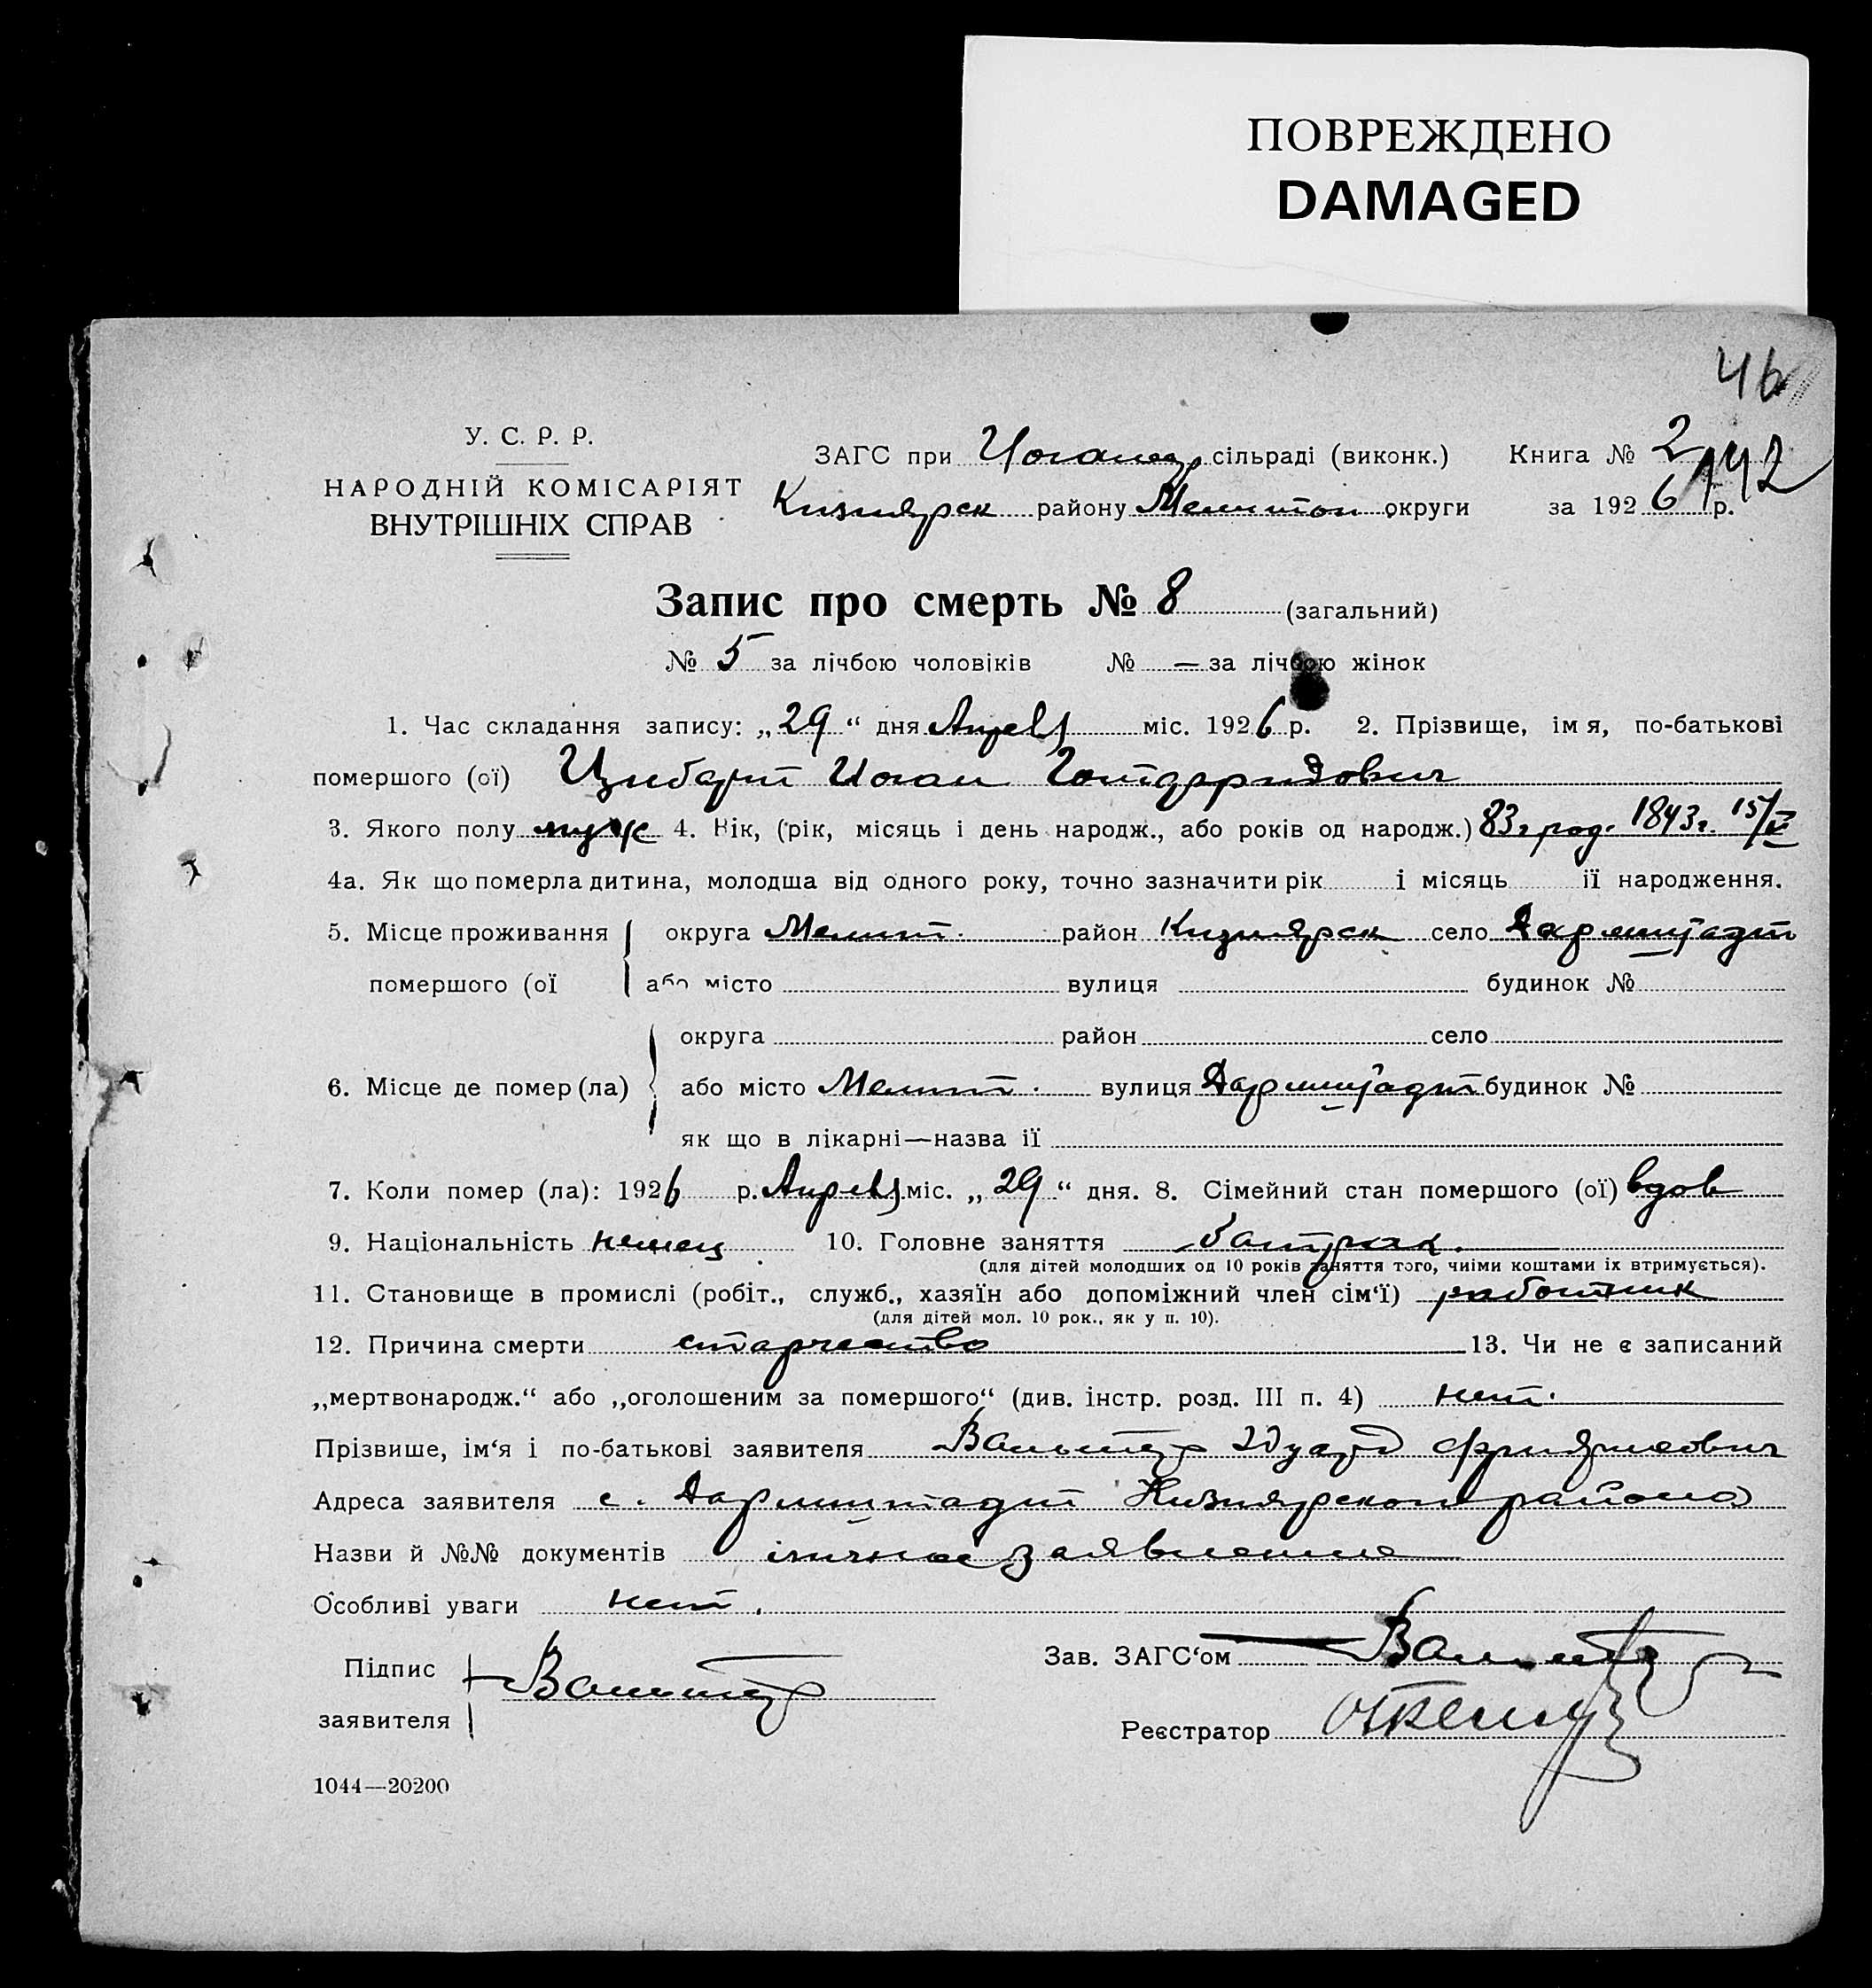 ПОВРЕЖДЕНО
DAMAGED
46
У. С. Р. Р.
НАРОДНІЙ КОМІСАРІЯТ
ВНУТРІШНІХ СПРАВ
ЗАГС при сільраді (виконк.) Книга № 2
142
Кизиярск району Мелитоп округи за 1926 р.
Запис про смерть № 8 (загальний)
№ 5 за лічбою чоловіків № — за лічбою жінок
1. Час складання запису: „29“ дня Апрель міс. 1926 р. 2. Прізвище, імя, по-батькові
помершого (ої) Цибарт Иоган Готфридович
3. Якого полу муж 4. Вік, (рік, місяць і день народж., або років од народж.) 83 г род. 1843 г. 15/V
4а. Як що померла дитина, молодша від одного року, точно зазначити рік і місяць її народження.
5. Місце проживання округа Мелит. район Кизиярск село Дармштадт
помершого (ої або місто вулиця будинок №
округа район село
6. Місце де помер (ла) або місто Мелит. вулиця Дармштадт будинок №
як що в лікарні—назва її
7. Коли помер (ла): 1926 р. Апрель міс. „29“ дня. 8. Сімейний стан помершого (ої) вдов
9. Національність немец 10. Головне заняття батрак.
(для дітей молодших од 10 років заняття того, чиїми коштами їх втримується).
11. Становище в промислі (робіт., служб., хазяїн або допоміжний член сім‘ї) работник
(для дітей мол. 10 рок., як у п. 10).
12. Причина смерти старчество 13. Чи не є записаний
„мертвонародж.“ або „оголошеним за помершого“ (див. інстр. розд. III п. 4) нет.
Прізвише, ім‘я і по-батькові заявителя Вальтер Эдуард
Адреса заявителя с. Дармштадт Кизиярского района
Назви й №№ документів личное заявление
Особливі уваги нет.
Підпис Вальтер Зав. ЗАГС‘ом Вальтер
заявителя
Реєстратор
1044—20200